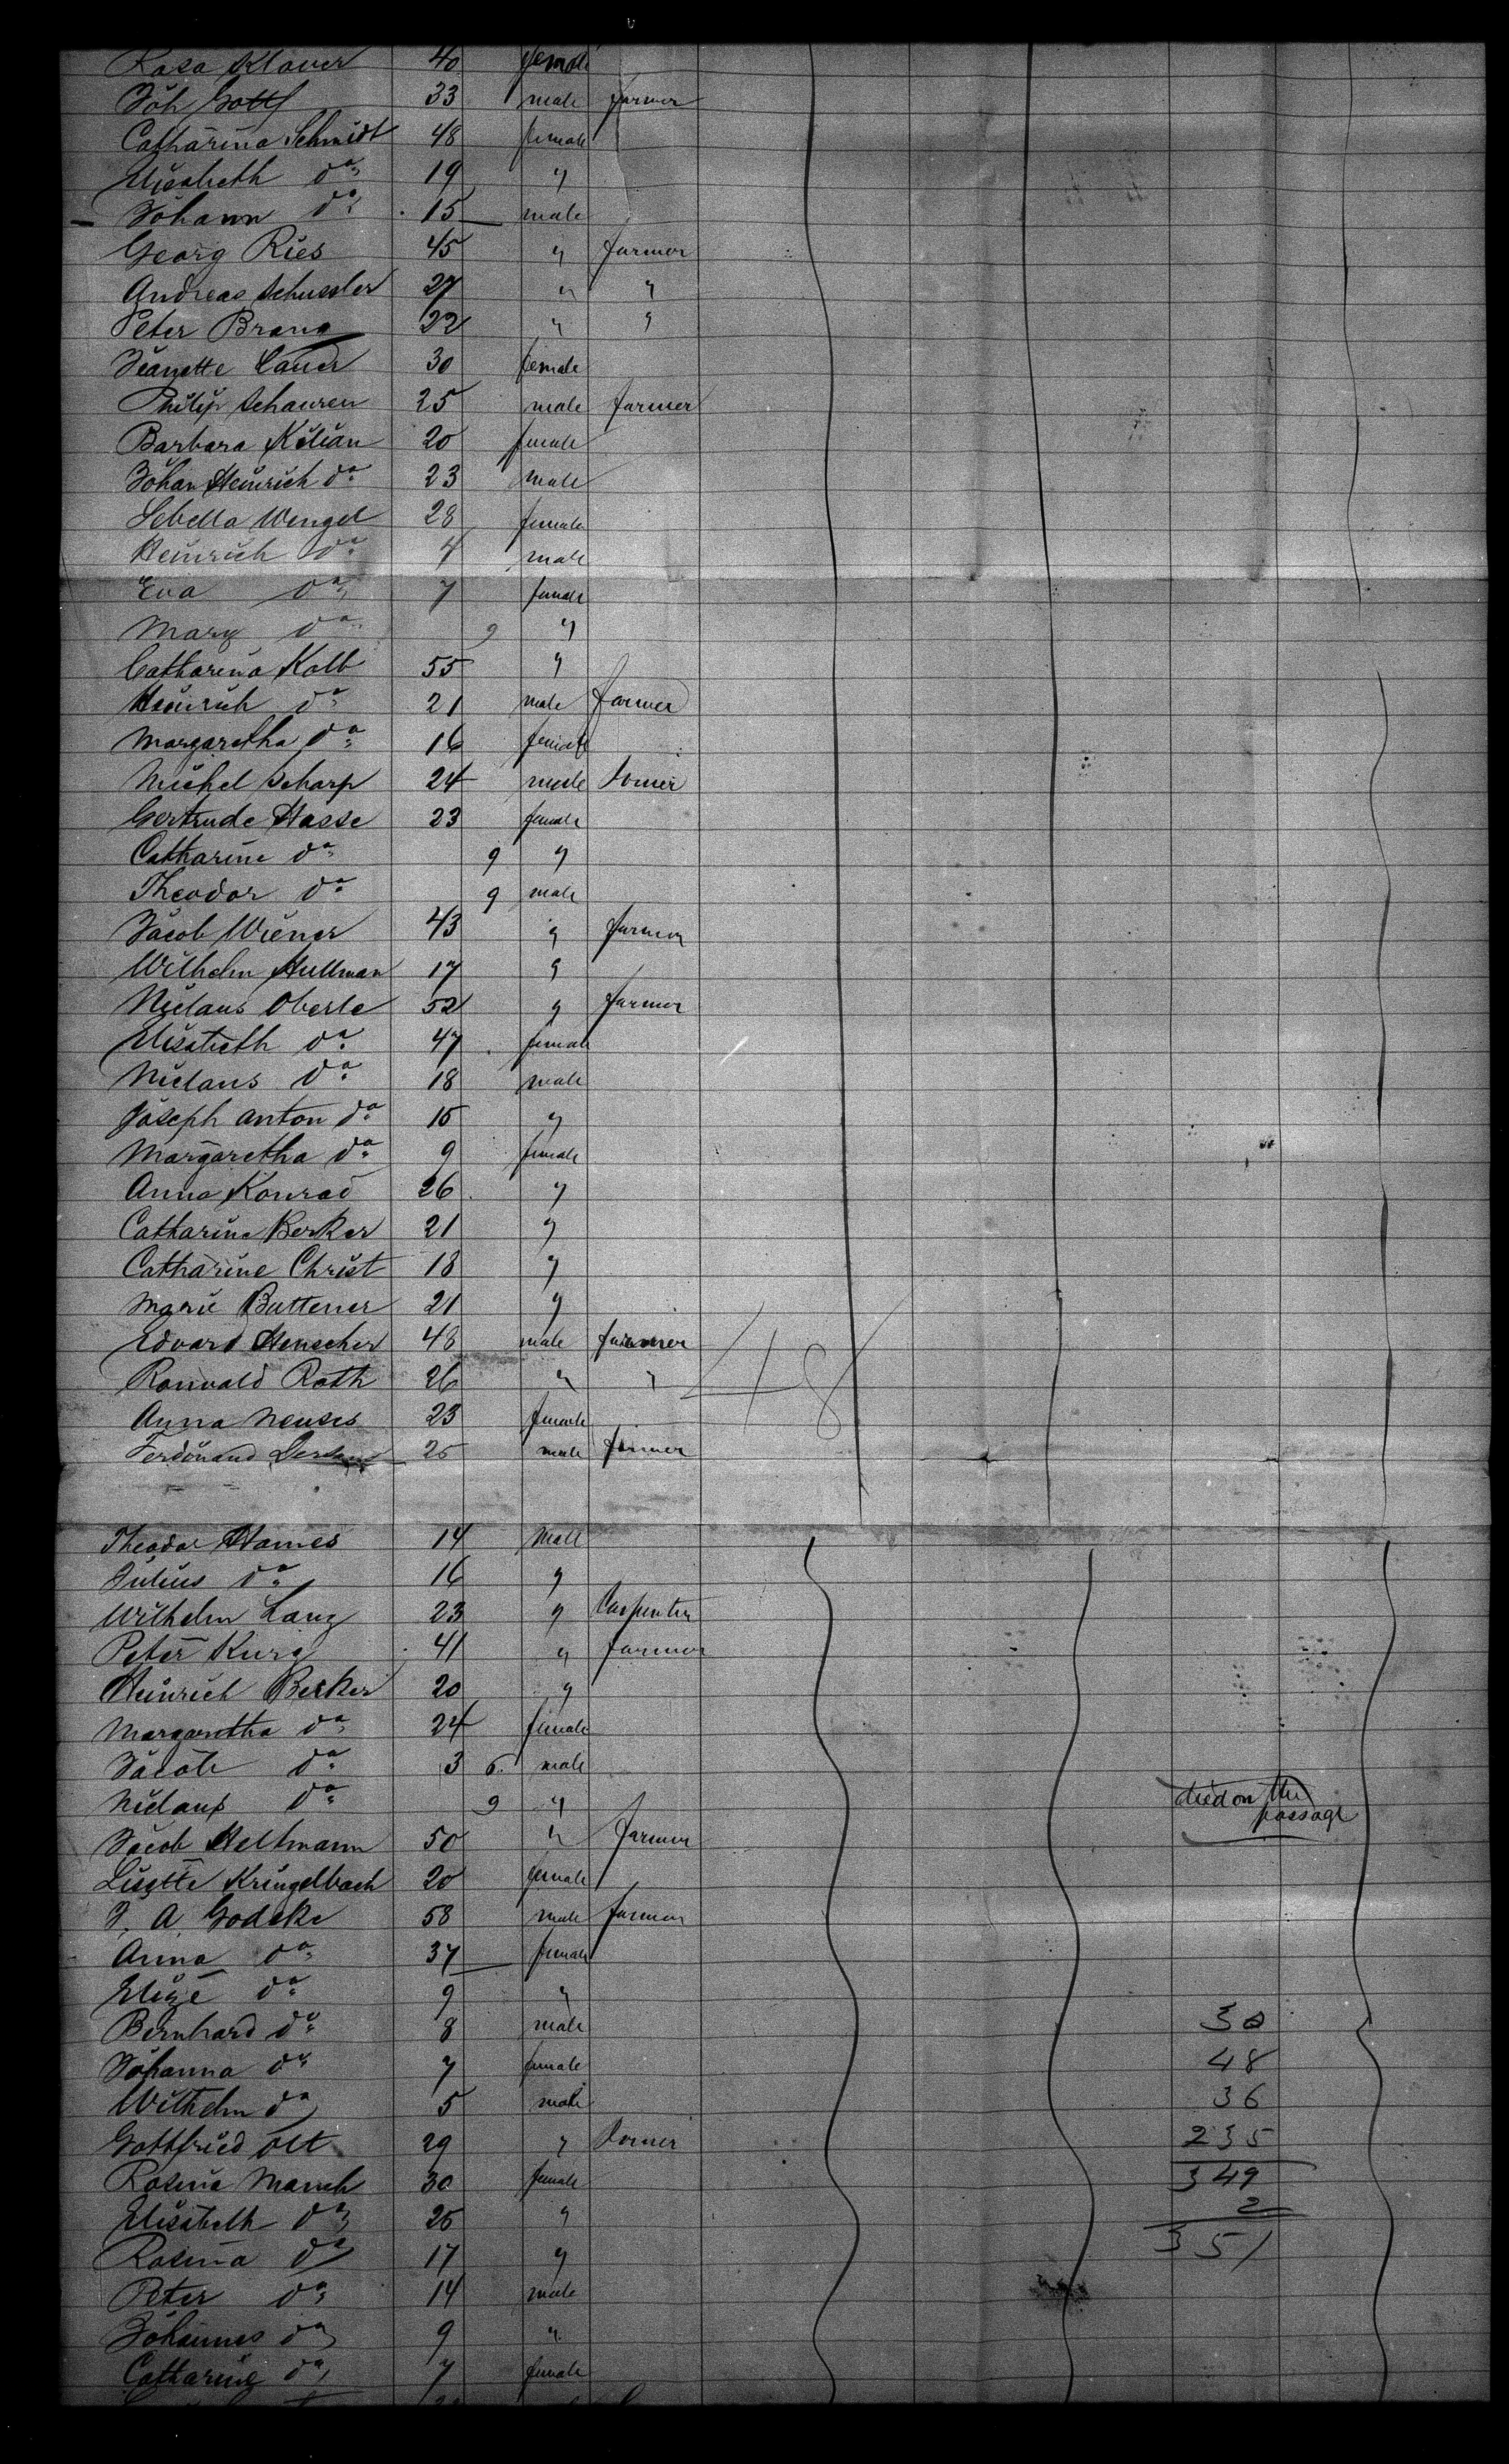 Rosa Klauer 40 female
Joh Gottf 33 male farmer
Catharina Schmidt 48 female
Elisabeth do 19 "
Johann do 15 male
Georg Ries 45 " farmer
Andreas Schussler 27 " "
Peter Brang 22 " "
Jeanette Cauer 30 female
Philip Schauren 25 male farmer
Barbara Kilian 20 female
Johan Heinrich do 23 male
Sebella Wengel 28 female
Heinrich do 4 male
Eva do 7 female
Marg do 9 "
Catharina Kolb 55 "
Heinrich do 21 male farmer
Margaretha do 16 female
Michel Scharp 24 male
Gertrude Hasse 23 female
Catharine do 9 "
Theodor do 9 male
Jacob Wiener 43 " farmer
Wilhelm Hullman 17 "
Niclaus Oberle 52 " farmer
Elisabeth do 47 female
Niclaus do 18 male
Joseph Anton do 15 "
Margaretha do 9 female
Anna Konrad 26 "
Catharine Berker 21 "
Catharine Christ 18 "
Marie Buttener 21 "
Edvard Henscher 48 male farmer
Ronvald Roth 26 " "
48
Anna Neuses 23 female
Ferdinand 25 male farmer
Theodor Hames 14 Male
Julius do 16 "
Wilhelm Lang 23 " Carpenter
Peter Kurz 41 " farmer
Heinrich Becker 20 "
Margaretha do 24 female
Jacob do 3 6. male
Niclaus do 9 " died on the passage
Jacob Heltmann 50 " farmer
Lisette Kringelbach 20 female
J. A Godeke 58 male farmer
Anna do 37 female
Elize do 9 "
Bernhard do 8 male 30
Johanna do 7 female 48
Wilhelm do 5 male 36
Gottfried Ott 29 " 235
Rosina Manch 30 female 349
Elisabeth do 25 " 2
Rosina do 17 " 351
Peter do 14 male
Johannes do 9 "
Catharine do 7 female